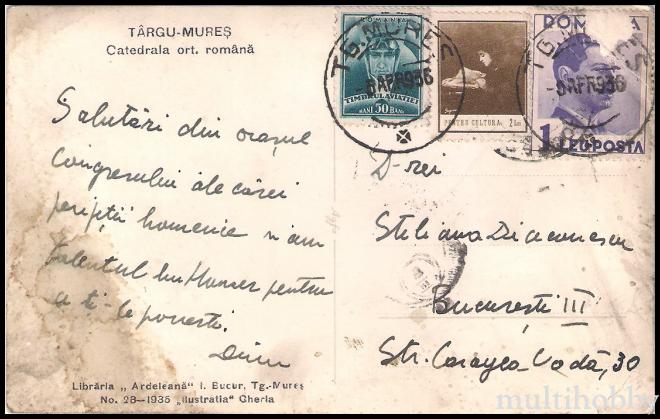 TÂRGU-MUREȘ
Catedrala ort. română
Salutări din orașul
Congresului ale cărei
peripeții homerice n'am
talentul lui Homer pentru
a ți-le povesti.
Dinu
Librăria „Ardeleană" I. Bucur, Tg.-Mureș
No. 28—1935 „Ilustratia" Gherla
ROMANIA
TIMBRUL AVIAȚIEI
BANI 50 BANI
PENTRU CULTURĂ 2 Lei
ROMÂNIA
1 LEU POSTA
TG. MUREȘ
-6 APR 936
TG. MUREȘ
-6 APR 936
D-rei
Steliana Diaconescu
București III
Str. Caragea Vodă, 30
multihobby